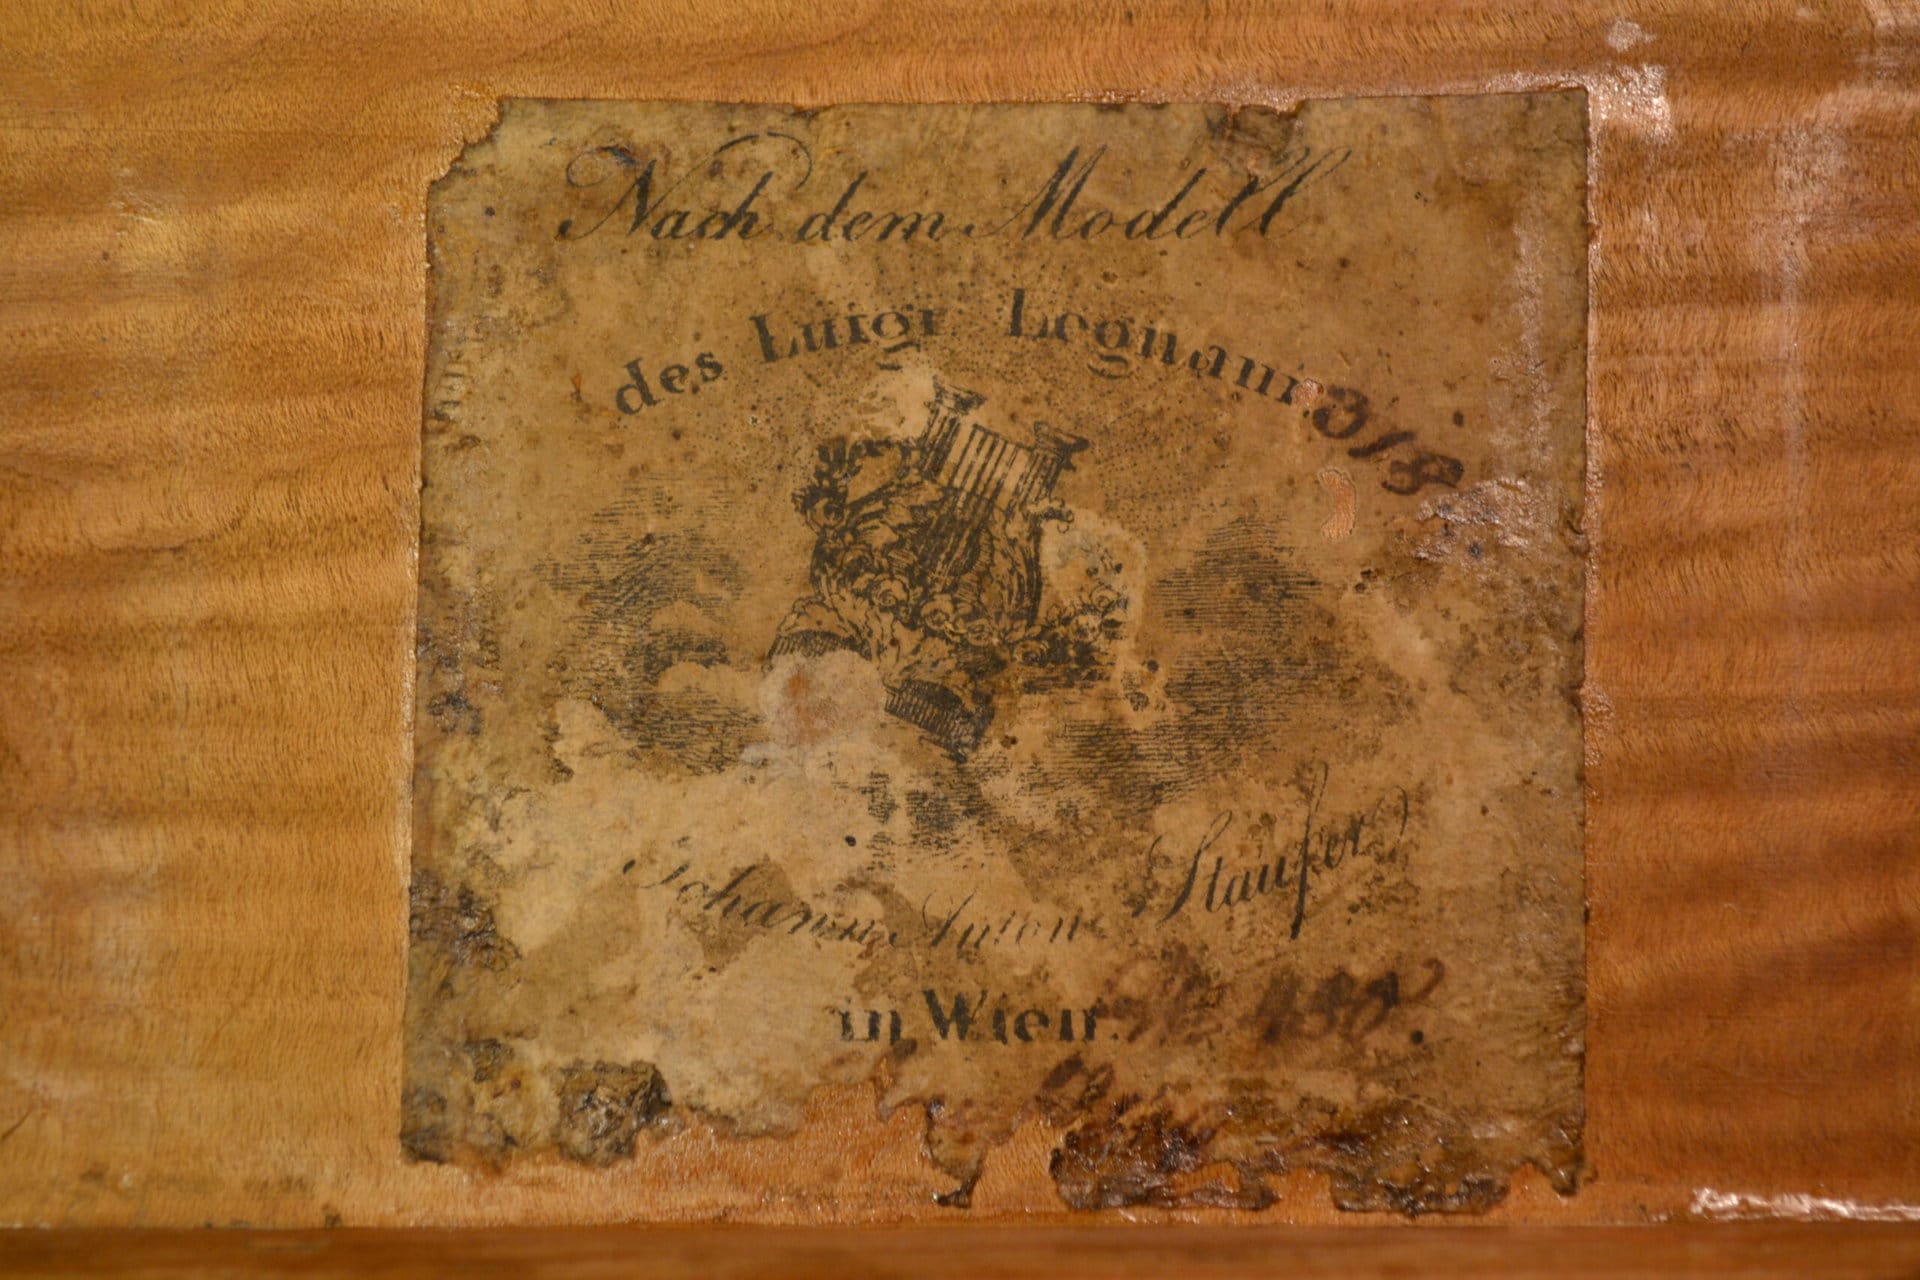 Nach dem Modell
des Luigi Legnani 318
Johann Anton Staufer
in Wien.